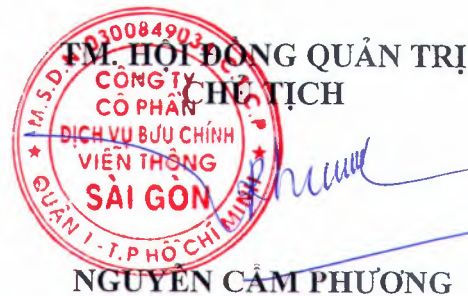 TM. HỘI ĐỒNG QUẢN TRỊ
CHỦ TỊCH
M.S.D.N: 0300849034 - C.T.C.P
CÔNG TY
CỔ PHẦN
DỊCH VỤ BƯU CHÍNH
VIỄN THÔNG
SÀI GÒN
QUẬN 1 - T.P HỒ CHÍ MINH
NGUYỄN CẨM PHƯƠNG